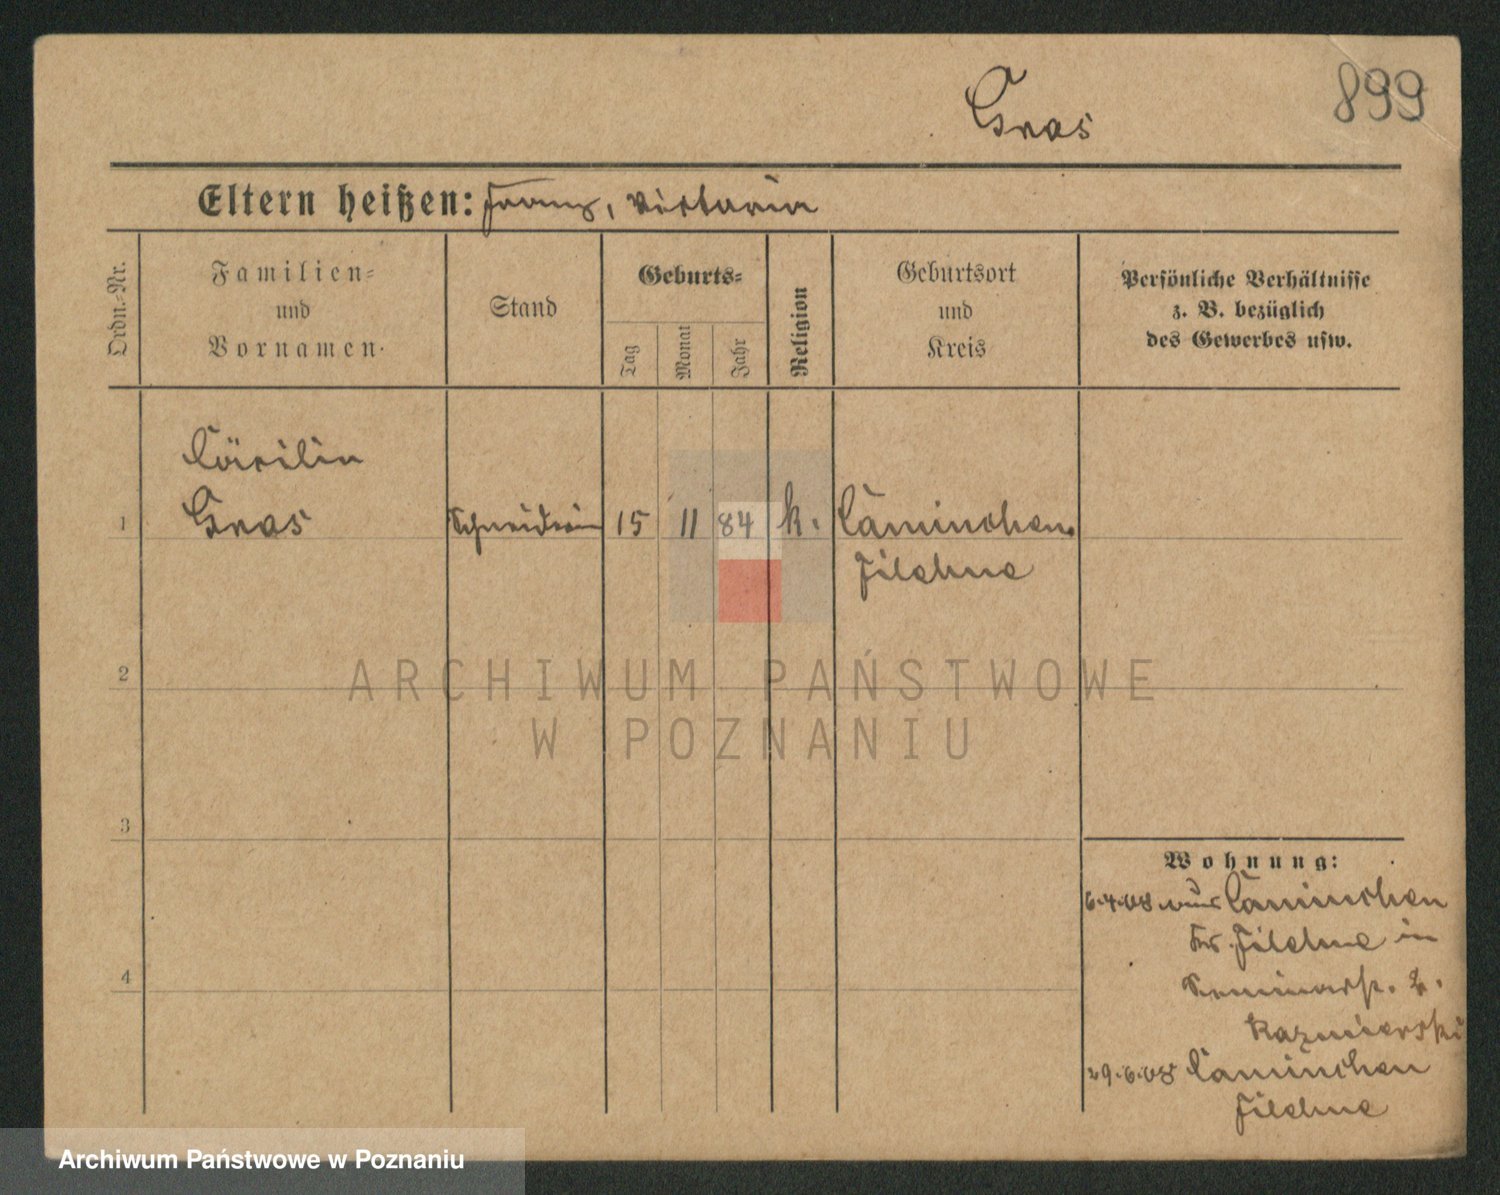 899
Gras
Eltern heißen: Franz, Victoria
Ordn.-Nr.
Familien-
und
Vornamen.
Stand
Geburts-
Tag
Monat
Jahr
Religion
Geburtsort
und
Kreis
Persönliche Verhältnisse
z. B. bezüglich
des Gewerbes usw.
Cäcilia
1 Gras Schneiderin 15 11 84 k. Caminchen
Filehne
2
3
4
Wohnung:
6.4.08 aus Caminchen
Kr. Filehne in
Seminarstr. 2.
Kazmierski
29.6.08 Caminchen
Filehne
ARCHIWUM PAŃSTWOWE
W POZNANIU
Archiwum Państwowe w Poznaniu